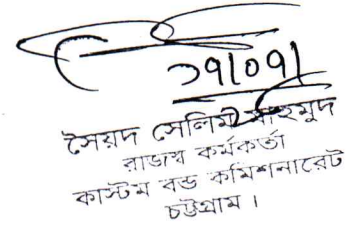 ১৭/০৭/
সৈয়দ সেলিম মাহমুদ
রাজস্ব কর্মকর্তা
কাস্টম বন্ড কমিশনারেট
চট্টগ্রাম।